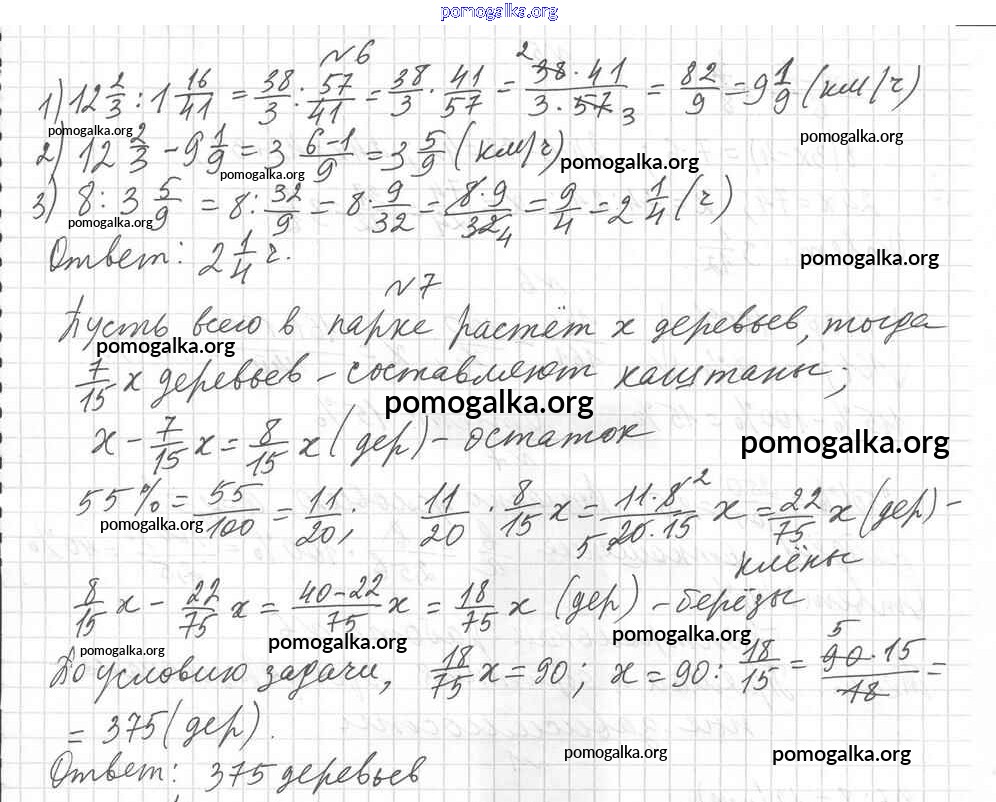 pomogalka.org
№6
1) 12 2/3 : 1 16/41 = 38/3 : 57/41 = 38/3 · 41/57 = 38 · 41 / 3 · 57 = 82/9 = 9 1/9 (км/ч)
2 3
pomogalka.org pomogalka.org
2) 12 2/3 - 9 1/9 = 3 6-1/9 = 3 5/9 (км/ч) pomogalka.org
pomogalka.org
3) 8 : 3 5/9 = 8 : 32/9 = 8 · 9/32 = 8 · 9 / 32 4 = 9/4 = 2 1/4 (ч)
pomogalka.org
Ответ: 2 1/4 ч. pomogalka.org
№7
Пусть всего в парке растёт x деревьев, тогда
pomogalka.org
7/15 x деревьев – составляют каштаны;
pomogalka.org
x - 7/15 x = 8/15 x (дер) – остаток
pomogalka.org
55% = 55/100 = 11/20; 11/20 · 8/15 x = 11 · 8 2 / 5 20 · 15 x = 22/75 x (дер) –
pomogalka.org
клёны
8/15 x - 22/75 x = 40-22/75 x = 18/75 x (дер) – берёзы
pomogalka.org pomogalka.org
pomogalka.org
По условию задачи, 18/75 x = 90; x = 90 : 18/15 = 5 90 · 15 / 18 =
= 375 (дер).
pomogalka.org pomogalka.org
Ответ: 375 деревьев